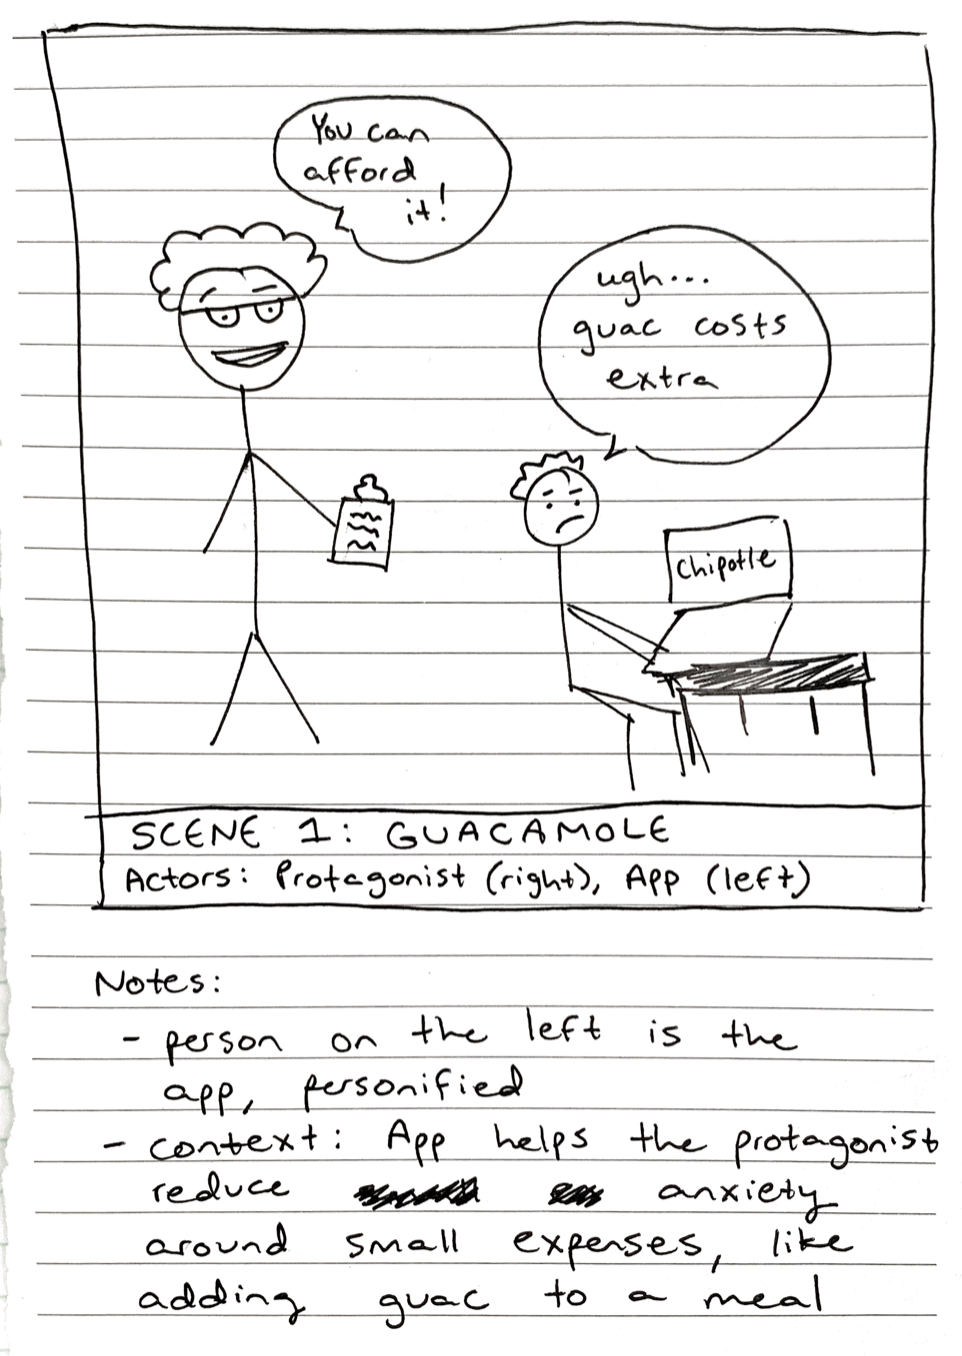 You can
afford
it!
ugh...
guac costs
extra
Chipotle
SCENE 1: GUACAMOLE
Actors: Protagonist (right), App (left)
Notes:
- person on the left is the
app, personified
- context: App helps the protagonist
reduce anxiety
around small expenses, like
adding guac to a meal